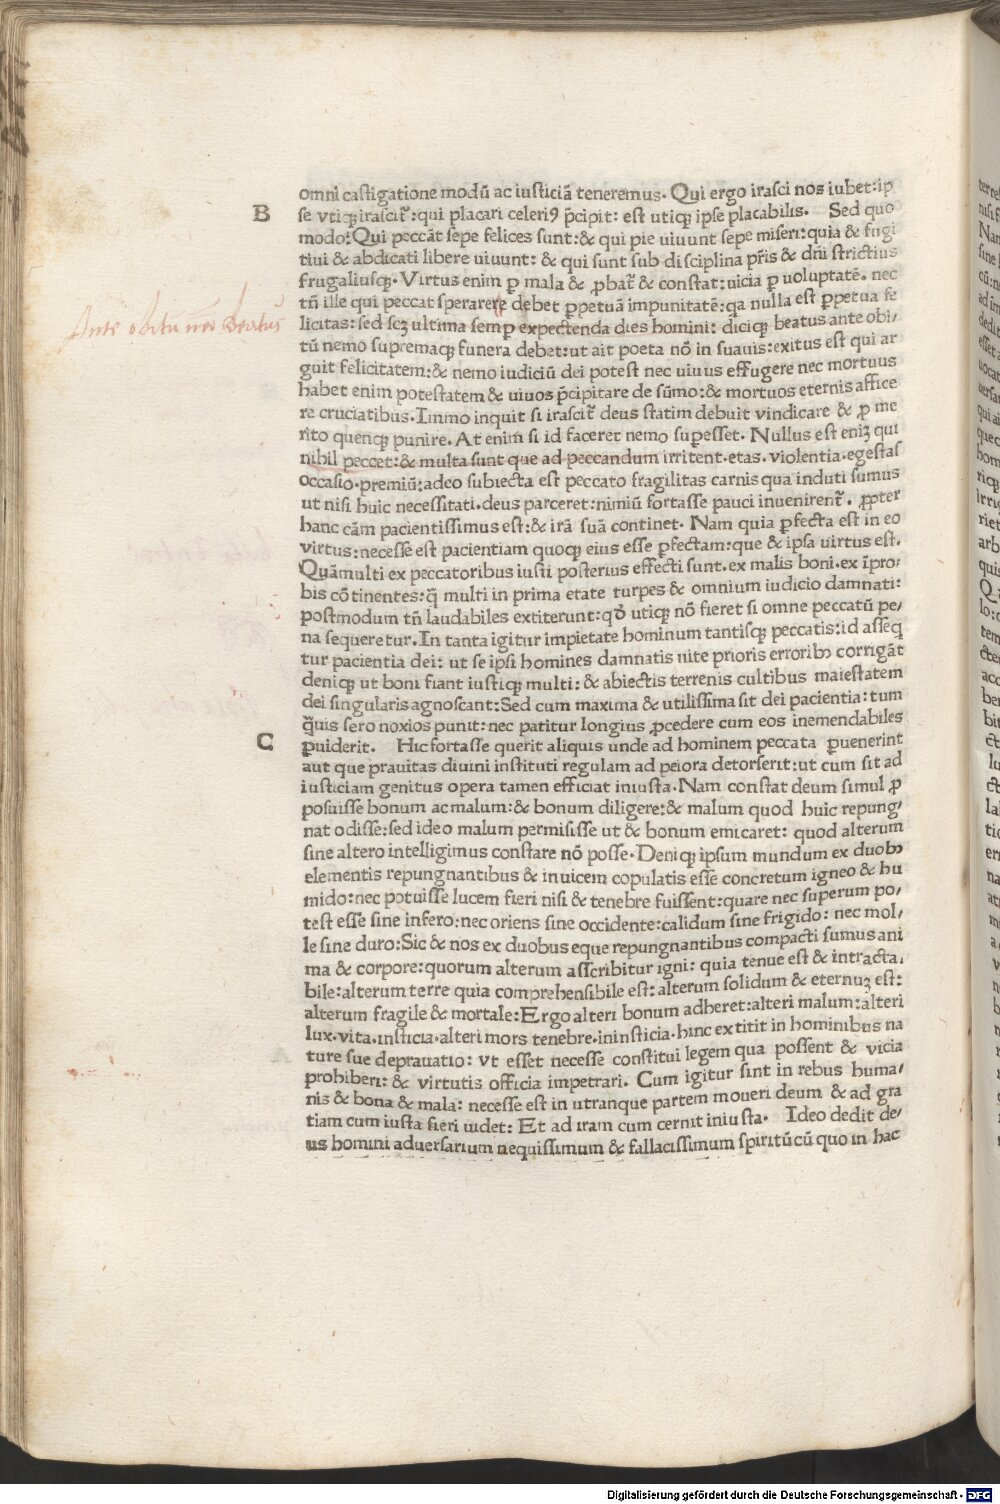 omni castigatione modū ac iusticiā teneremus. Qui ergo irasci nos iubet:ip
B
se vtiqꝫ irascit᷒:qui placari celeriꝰ p̄cipit: est utiqꝫ ipse placabilis. Sed quo
modo: Qui peccāt sepe felices sunt:& qui pie uiuunt sepe miseri:quia & fugi
tiui & abdicati libere uiuunt: & qui sunt sub disciplina pr̄is & dn̄i strictius
frugaliusqꝫ. Virtus enim ꝑ mala & ꝓbat᷒ & constat:uicia ꝑ uoluptatē. nec
tn̄ ille qui peccat sperarere debet ꝑpetuā impunitatē:qa nulla est ꝑpetua fe
Ante obitū nēo Beatus
licitas: sed scꝫ ultima semꝑ expectenda dies homini: diciqꝫ beatus ante obi/
tū nemo supremaqꝫ funera debet:ut ait poeta nō in suauis:exitus est qui ar
guit felicitatem:& nemo iudiciū dei potest nec uiuus effugere nec mortuus
habet enim potestatem & uiuos p̄cipitare de sūmo:& mortuos eternis affice
re cruciatibus. Immo inquit si irascit᷒ deus statim debuit vindicare & ꝓ me
rito quencqꝫ punire. At enim̄ si id faceret nemo suꝑesset. Nullus est eniꝫ qui
nihil peccet:& multa sunt que ad peccandum irritent.etas. violentia.egestas
occasio.premiū:adeo subiecta est peccato fragilitas carnis qua induti sumus
ut nisi huic necessitati.deus parceret:nimiū fortasse pauci inuenirent᷒. ꝓpter
hanc cām pacientissimus est:& irā suā continet. Nam quia ꝑfecta est in eo
virtus:necesse est pacientiam quoqꝫ eius esse ꝑfectam:que & ipsa uirtus est.
Quāmulti ex peccatoribus iusti posterius effecti sunt.ex malis boni.ex īpro/
bis cōtinentes:q̄ multi in prima etate turpes & omnium iudicio damnati:
postmodum tn̄ laudabiles extiterunt:qđ utiqꝫ nō fieret si omne peccatū pe/
na sequeretur. In tanta igitur impietate hominum tantisqꝫ peccatis:id asseq
tur pacientia dei: ut se ipsi homines damnatis uite prioris erroribꝫ corrigāt
deniqꝫ ut boni fiant iustiqꝫ multi: & abiectis terrenis cultibus maiestatem
dei singularis agnoscant:Sed cum maxima & utilissima sit dei pacientia:tum
q̄uis sero noxios punit:nec patitur longius ꝓcedere cum eos inemendabiles
C
ꝑuiderit. Hic fortasse querit aliquis unde ad hominem peccata ꝑuenerint
aut que prauitas diuini instituti regulam ad peiora detorserit:ut cum sit ad
iusticiam genitus opera tamen efficiat iniusta. Nam constat deum simul ꝓ
posuisse bonum ac malum:& bonum diligere:& malum quod huic repung/
nat odisse:sed ideo malum permisisse ut & bonum emicaret: quod alterum
sine altero intelligimus constare nō posse. Deniqꝫ ipsum mundum ex duobꝫ
elementis repungnantibus & inuicem copulatis esse concretum igneo & hu
mido:nec potuisse lucem fieri nisi & tenebre fuissent:quare nec superum po/
test esse sine infero:nec oriens sine occidente:calidum sine frigido: nec mol/
le sine duro:Sic & nos ex duobus eque repungnantibus compacti sumus ani
ma & corpore:quorum alterum asscribitur igni: quia tenue est & intracta/
bile:alterum terre quia comprehensibile est:alterum solidum & eternuꝫ est:
alterum fragile & mortale:Ergo alteri bonum adheret:alteri malum:alteri
lux.vita.insticia.alteri mors tenebre.ininsticia.hinc extitit in hominibus na
ture sue deprauatio: vt esset necesse constitui legem qua possent & vicia
prohiberi: & virtutis officia impetrari. Cum igitur sint in rebus huma/
nis & bona & mala: necesse est in utranque partem moueri deum & ad gra
tiam cum iusta fieri uidet: Et ad iram cum cernit iniusta. Ideo dedit de/
us homini aduersarium nequissimum & fallacissimum spiritū cū quo in hac
Digitalisierung gefördert durch die Deutsche Forschungsgemeinschaft - DFG